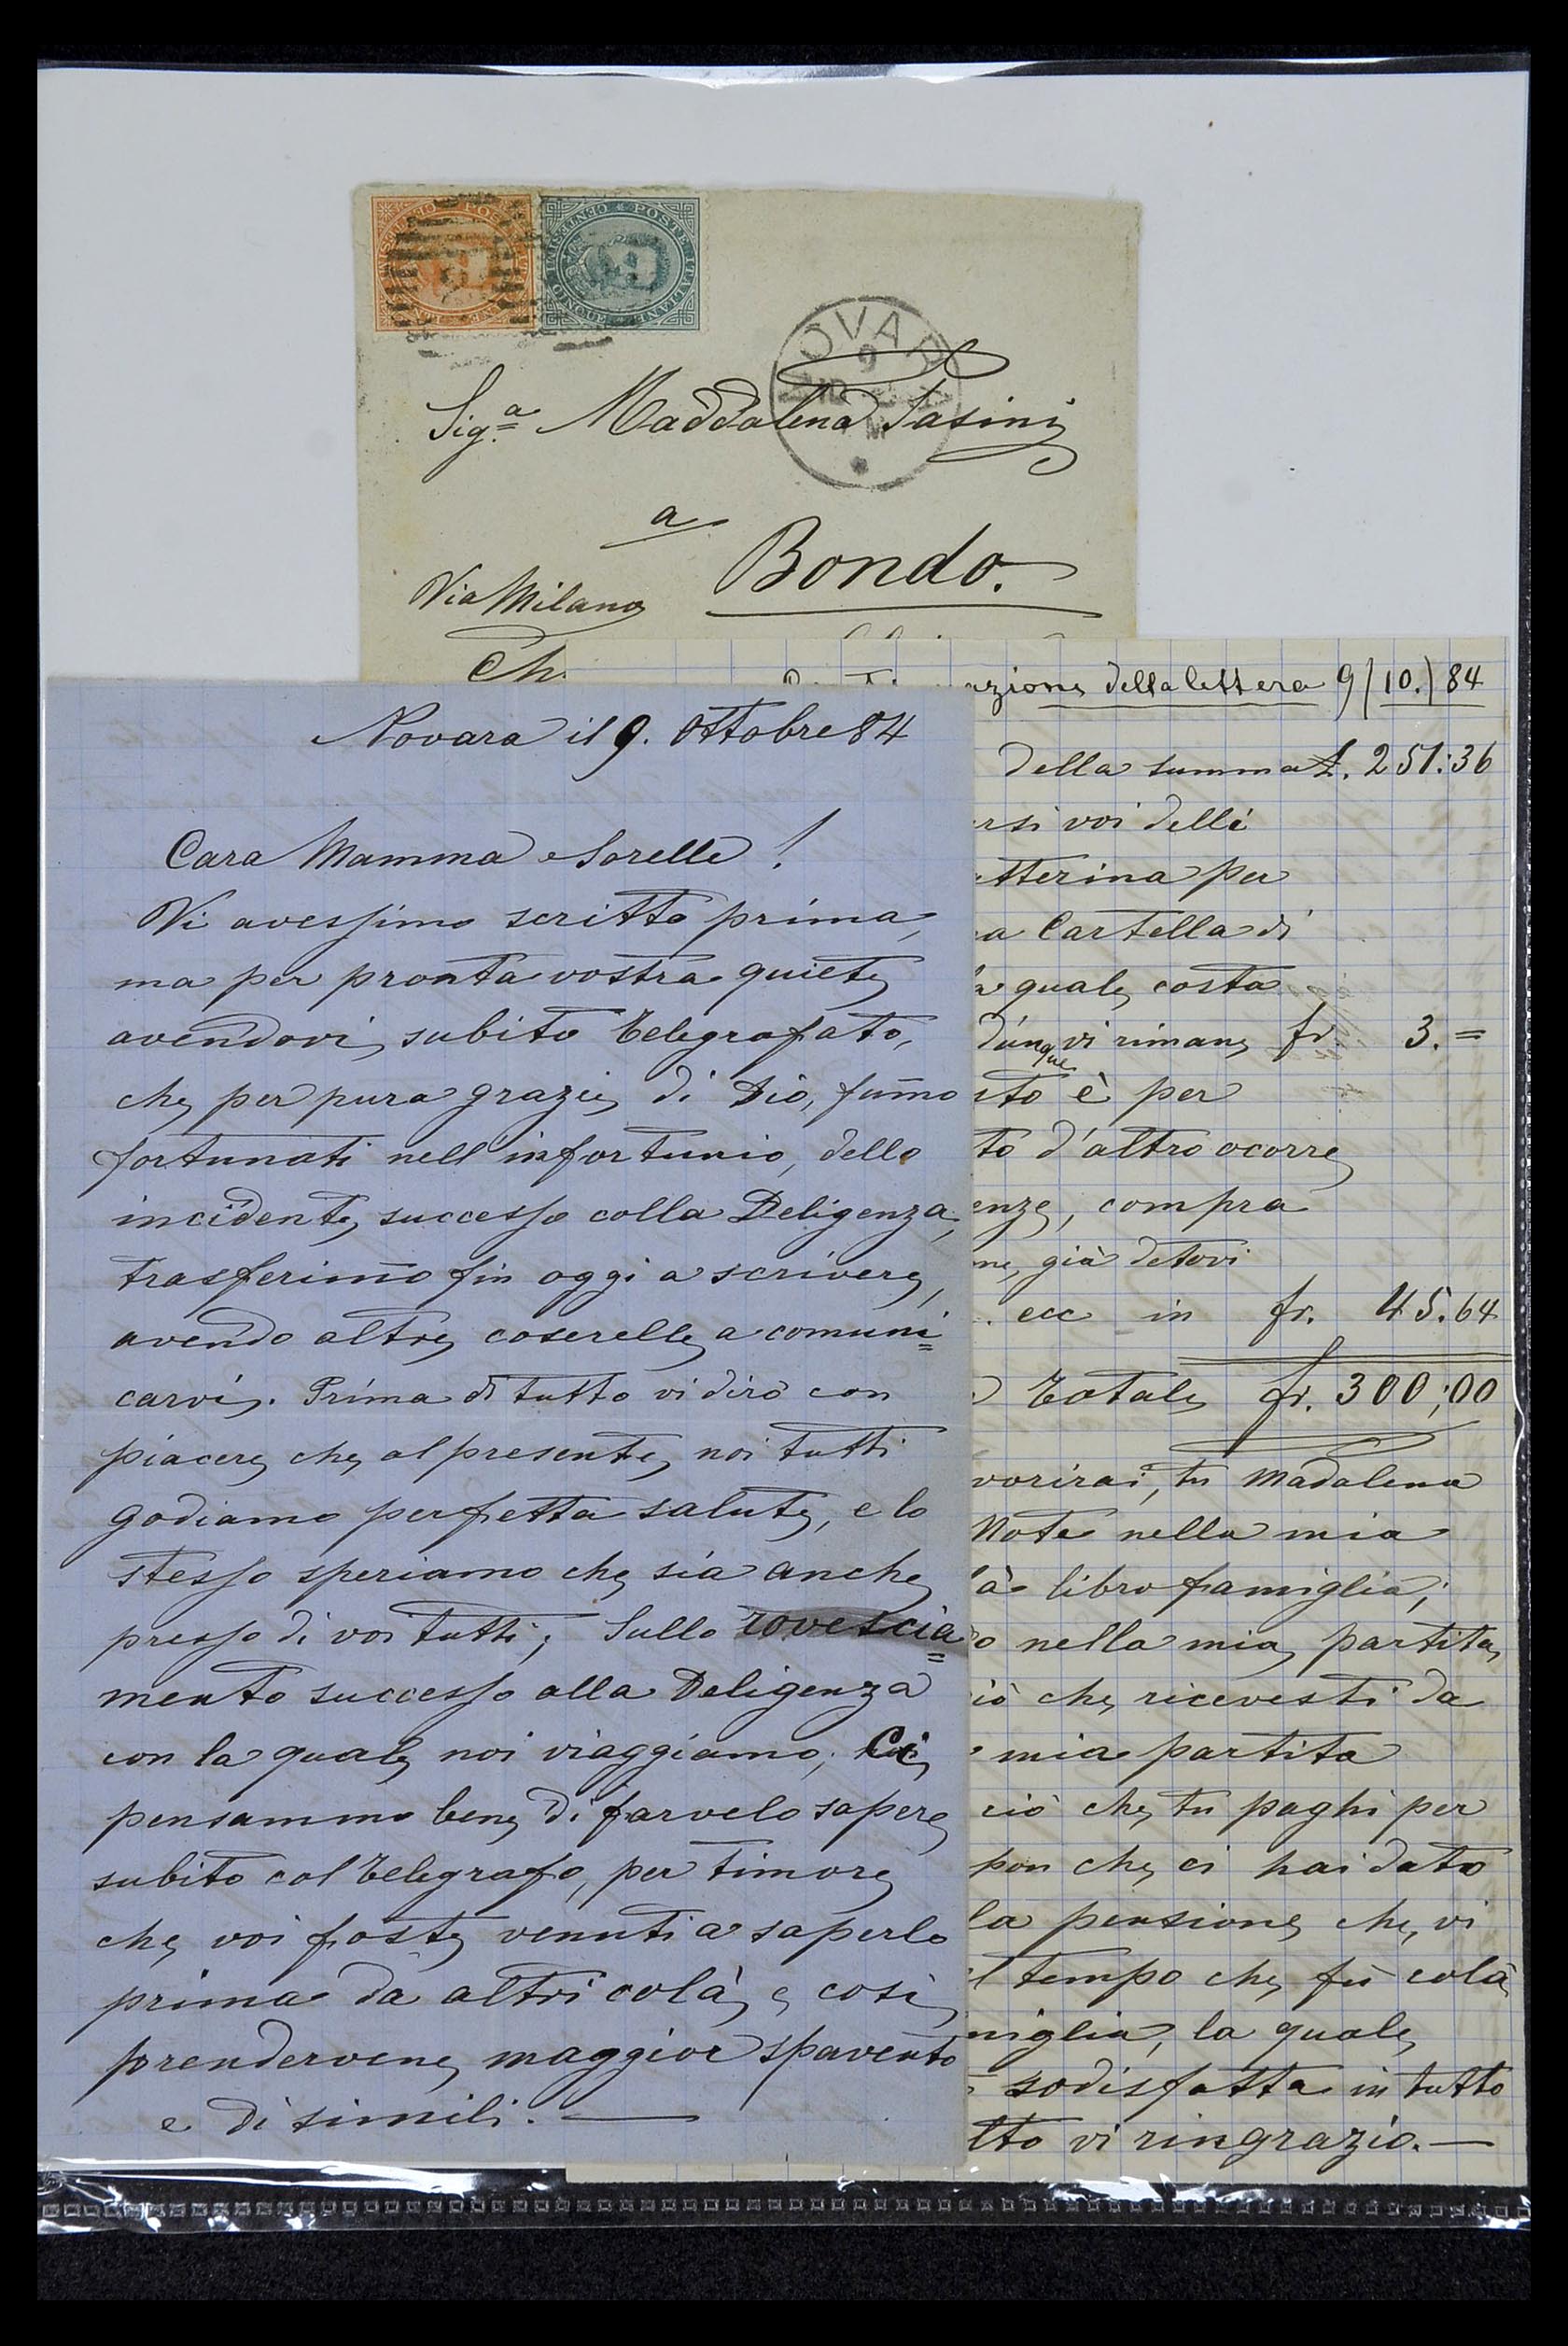 POSTE ITALIANE
CENTESIMI
POSTE ITALIANE
CENTESIMI
NOVARA
9
Sig.ª Maddalena Fasini
a
Bondo.
Via Milano
Ch
azione della lettera 9/10./84
della summa £. 251:36
rsi voi delli
etterina per
a Cartella di
a quale costa
dunque vi rimane fr. 3.=
sto è per
to d'altro ocorre
enze, compra
ne, già detovi
. ecc in fr. 45.64
Totale fr. 300;00
vorirai, tu Madalena
Note nella mia
à libro famiglia;
o nella mia partita
iò che ricevesti da
mia partita
ciò che tu paghi per
pon che ci hai dato
la pensione che vi
l tempo che fù colà
miglia, la quale
sodisfatta in tutto
lto vi ringrazio.—
Novara il 9. Ottobre 84
Cara Mamma e Sorelle !
Vi avessimo scritto prima,
ma per pronta vostra quiete
avendovi subito telegrafato,
che per pura grazie di Dio, fum̄o
fortunati nell'infortunio, dello
incidente successo colla Deligenza,
trasferim̄o fin oggi a scrivere,
avendo altre coserelle a comuni=
carvi. Prima di tutto vi dirò con
piacere che al presente noi tutti
godiamo perfetta salute, e lo
stesso speriamo che sia anche
presso di voi tutti; Sullo rovescia=
mento successo alla Deligenza
con la quale noi viaggiamo; Ci
pensammo bene di farvelo sapere
subito col telegrafo, per timore
che voi foste venuti a saperlo
prima da altri colà, e così
prendervene maggior spavento
e di simili. —